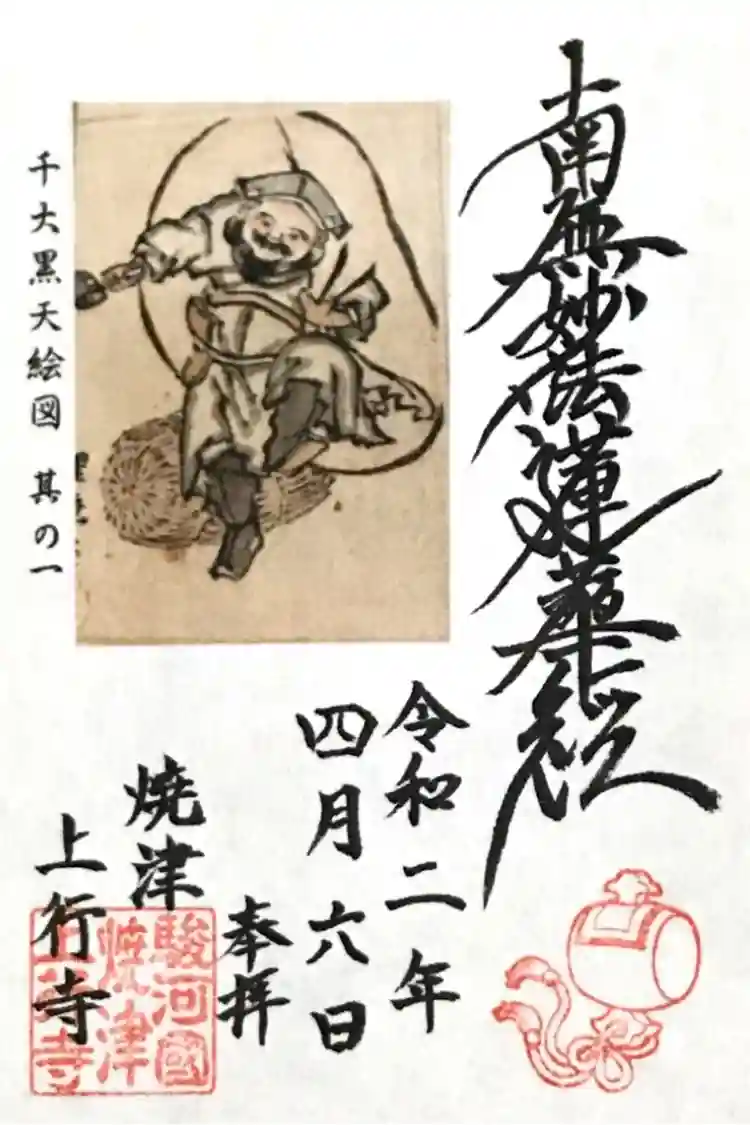 南無妙法蓮華経
令和二年
四月六日
奉拝
焼津
上行寺
千大黒天絵図 其の一
駿河國
焼津
上行寺